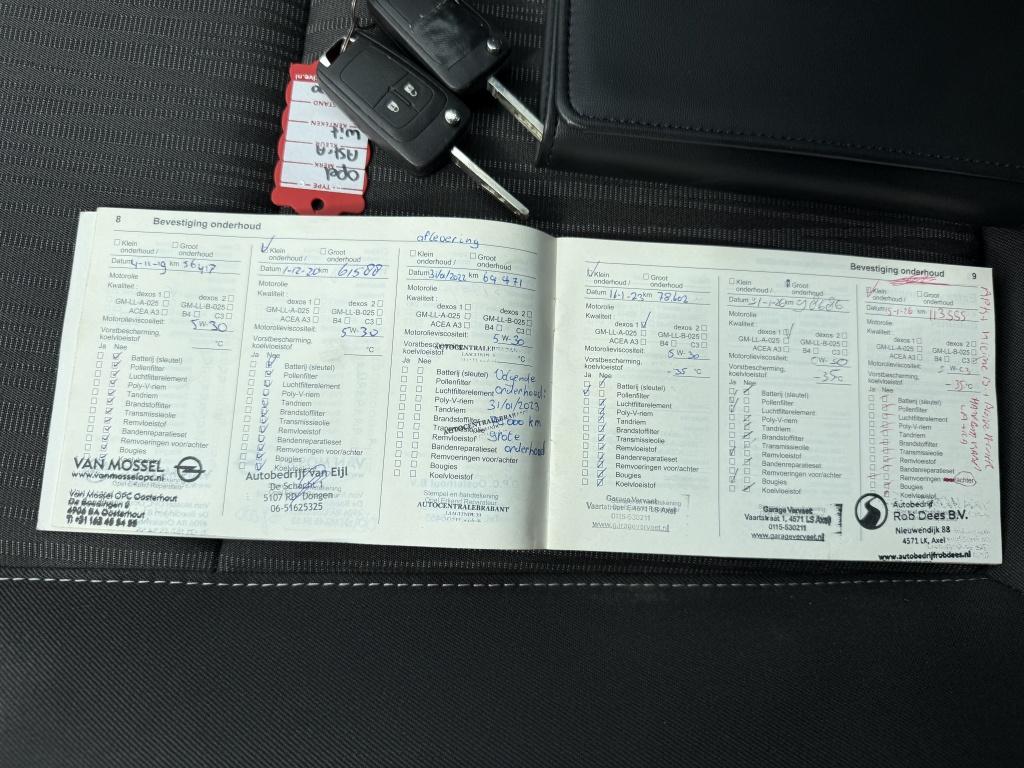 TYPE
Opel
MERK
AStrA
KLEUR
wit
KENTEKEN
8 Bevestiging onderhoud
Klein onderhoud / Groot onderhoud
Datum 4-11-19 km 56417
Motorolie
Kwaliteit :
dexos 1 dexos 2
GM-LL-A-025 GM-LL-B-025
ACEA A3 B4 C3
Motorolieviscositeit:
5W-30
Vorstbescherming, koelvloeistof °C
Ja Nee
Batterij (sleutel)
Pollenfilter
Luchtfilterelement
Poly-V-riem
Tandriem
Brandstoffilter
Transmissieolie
Remvloeistof
Bandenreparatieset
Remvoeringen voor/achter
VAN MOSSEL
www.vanmosselopc.nl
Van Mossel OPC Oosterhout
Klein onderhoud / Groot onderhoud
Datum 1-12-20 km 61588
Motorolie
Kwaliteit :
dexos 1 dexos 2
GM-LL-A-025 GM-LL-B-025
ACEA A3 B4 C3
Motorolieviscositeit:
5W-30
Vorstbescherming, koelvloeistof °C
Ja Nee
Batterij (sleutel)
Pollenfilter
Luchtfilterelement
Poly-V-riem
Tandriem
Brandstoffilter
Transmissieolie
Remvloeistof
Bandenreparatieset
Remvoeringen voor/achter
Bougies
Koelvloeistof
Autobedrijf van Eijl
5107 RD Dongen
06-51625325
aflevering
Klein onderhoud / Groot onderhoud
Datum 31/01/2022 km 64 471
Motorolie
Kwaliteit :
dexos 1 dexos 2
GM-LL-A-025 GM-LL-B-025
ACEA A3 B4 C3
Motorolieviscositeit:
5W-30
°C
Ja Nee
Batterij (sleutel) Volgende
Pollenfilter
Luchtfilterelement onderhoud:
Poly-V-riem
Tandriem 31/01/2023
Brandstoffilter
km
Remvloeistof
Bandenreparatieset grote
Remvoeringen voor/achter onderhoud
Bougies
Koelvloeistof
Stempel en handtekening
Opel Erkend Reparateur
AUTOCENTRALEBRABANT
Bevestiging onderhoud 9
Klein onderhoud / Groot onderhoud
Datum 16-1-23 km 78.602
Motorolie
Kwaliteit :
dexos 1 dexos 2
GM-LL-A-025 GM-LL-B-025
ACEA A3 B4 C3
Motorolieviscositeit:
5W-30
Vorstbescherming, koelvloeistof -35 °C
Ja Nee
Batterij (sleutel)
Pollenfilter
Luchtfilterelement
Poly-V-riem
Tandriem
Brandstoffilter
Transmissieolie
Remvloeistof
Bandenreparatieset
Remvoeringen voor/achter
Bougies
Koelvloeistof
Garage Vervaet
0115-530211
www.garagevervaet.nl
Klein onderhoud / Groot onderhoud
Motorolie
Kwaliteit :
dexos 1 dexos 2
GM-LL-A-025 GM-LL-B-025
ACEA A3 B4 C3
Motorolieviscositeit:
Vorstbescherming, koelvloeistof -35 °C
Ja Nee
Batterij (sleutel)
Pollenfilter
Luchtfilterelement
Poly-V-riem
Tandriem
Brandstoffilter
Transmissieolie
Remvloeistof
Bandenreparatieset
Remvoeringen voor/achter
Bougies
Koelvloeistof
Garage Vervaet
Vaartstraat 1, 4571 LS Axel
0115-530211
www.garagevervaet.nl
Klein onderhoud / Groot onderhoud
km 113555
Motorolie
Kwaliteit :
dexos 1 dexos 2
GM-LL-A-025 GM-LL-B-025
ACEA A3 B4 C3
Motorolieviscositeit:
Vorstbescherming, koelvloeistof -35 °C
Ja Nee
Batterij (sleutel)
Pollenfilter
Luchtfilterelement
Poly-V-riem
Tandriem
Brandstoffilter
Transmissieolie
Remvloeistof
Bandenreparatieset
Remvoeringen
Bougies
Koelvloeistof
Autobedrijf
Rob Dees B.V.
Nieuwendijk 88
4571 LK, Axel
www.autobedrijfrobdees.nl